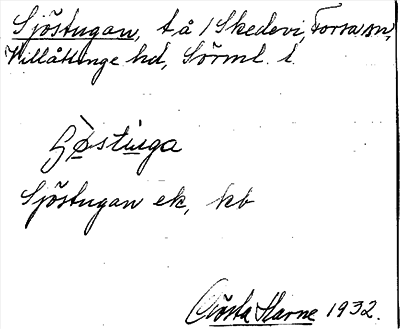 Sjöstugan, t å 1 Skedevi, Forsa sn,
Villåttinge hd, Sörml. l
Sjöstugan ek, kb
Gösta Harne 1932.